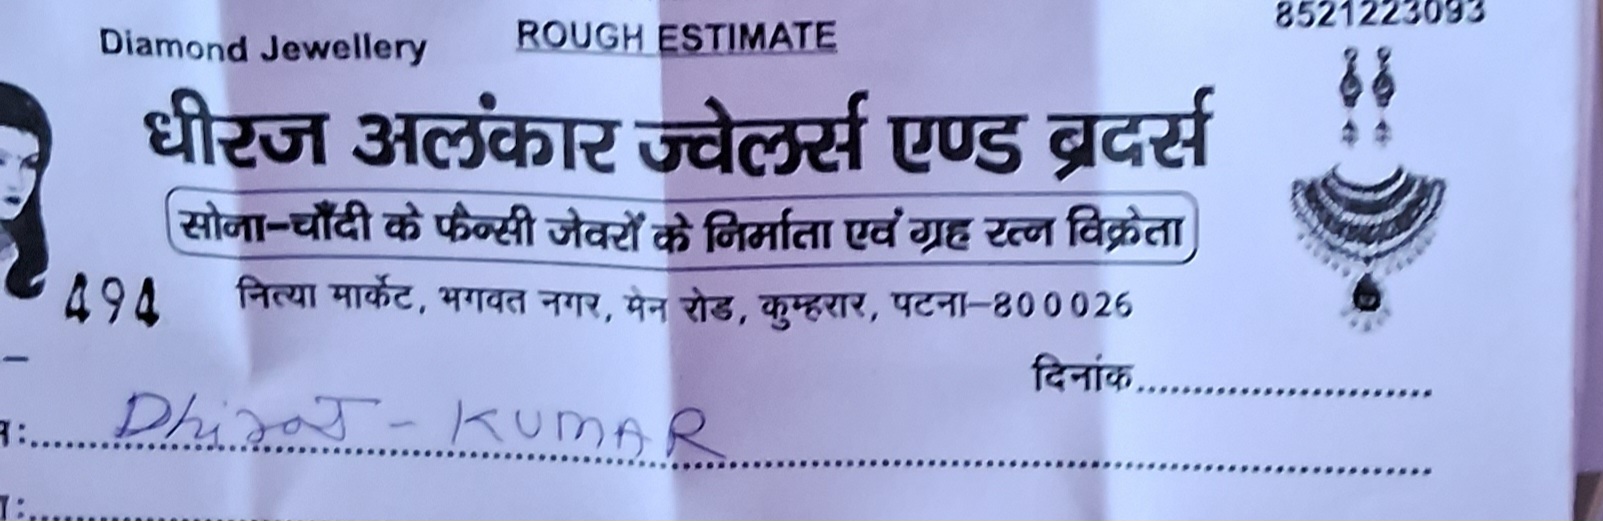 8521223093
Diamond Jewellery ROUGH ESTIMATE
धीरज अलंकार ज्वेलर्स एण्ड ब्रदर्स
सोना-चाँदी के फैन्सी जेवरों के निर्माता एवं ग्रह रत्न विक्रेता
494 नित्या मार्केट, भगवत नगर, मेन रोड, कुम्हरार, पटना-800026
दिनांक
Dhiraj - KUMAR